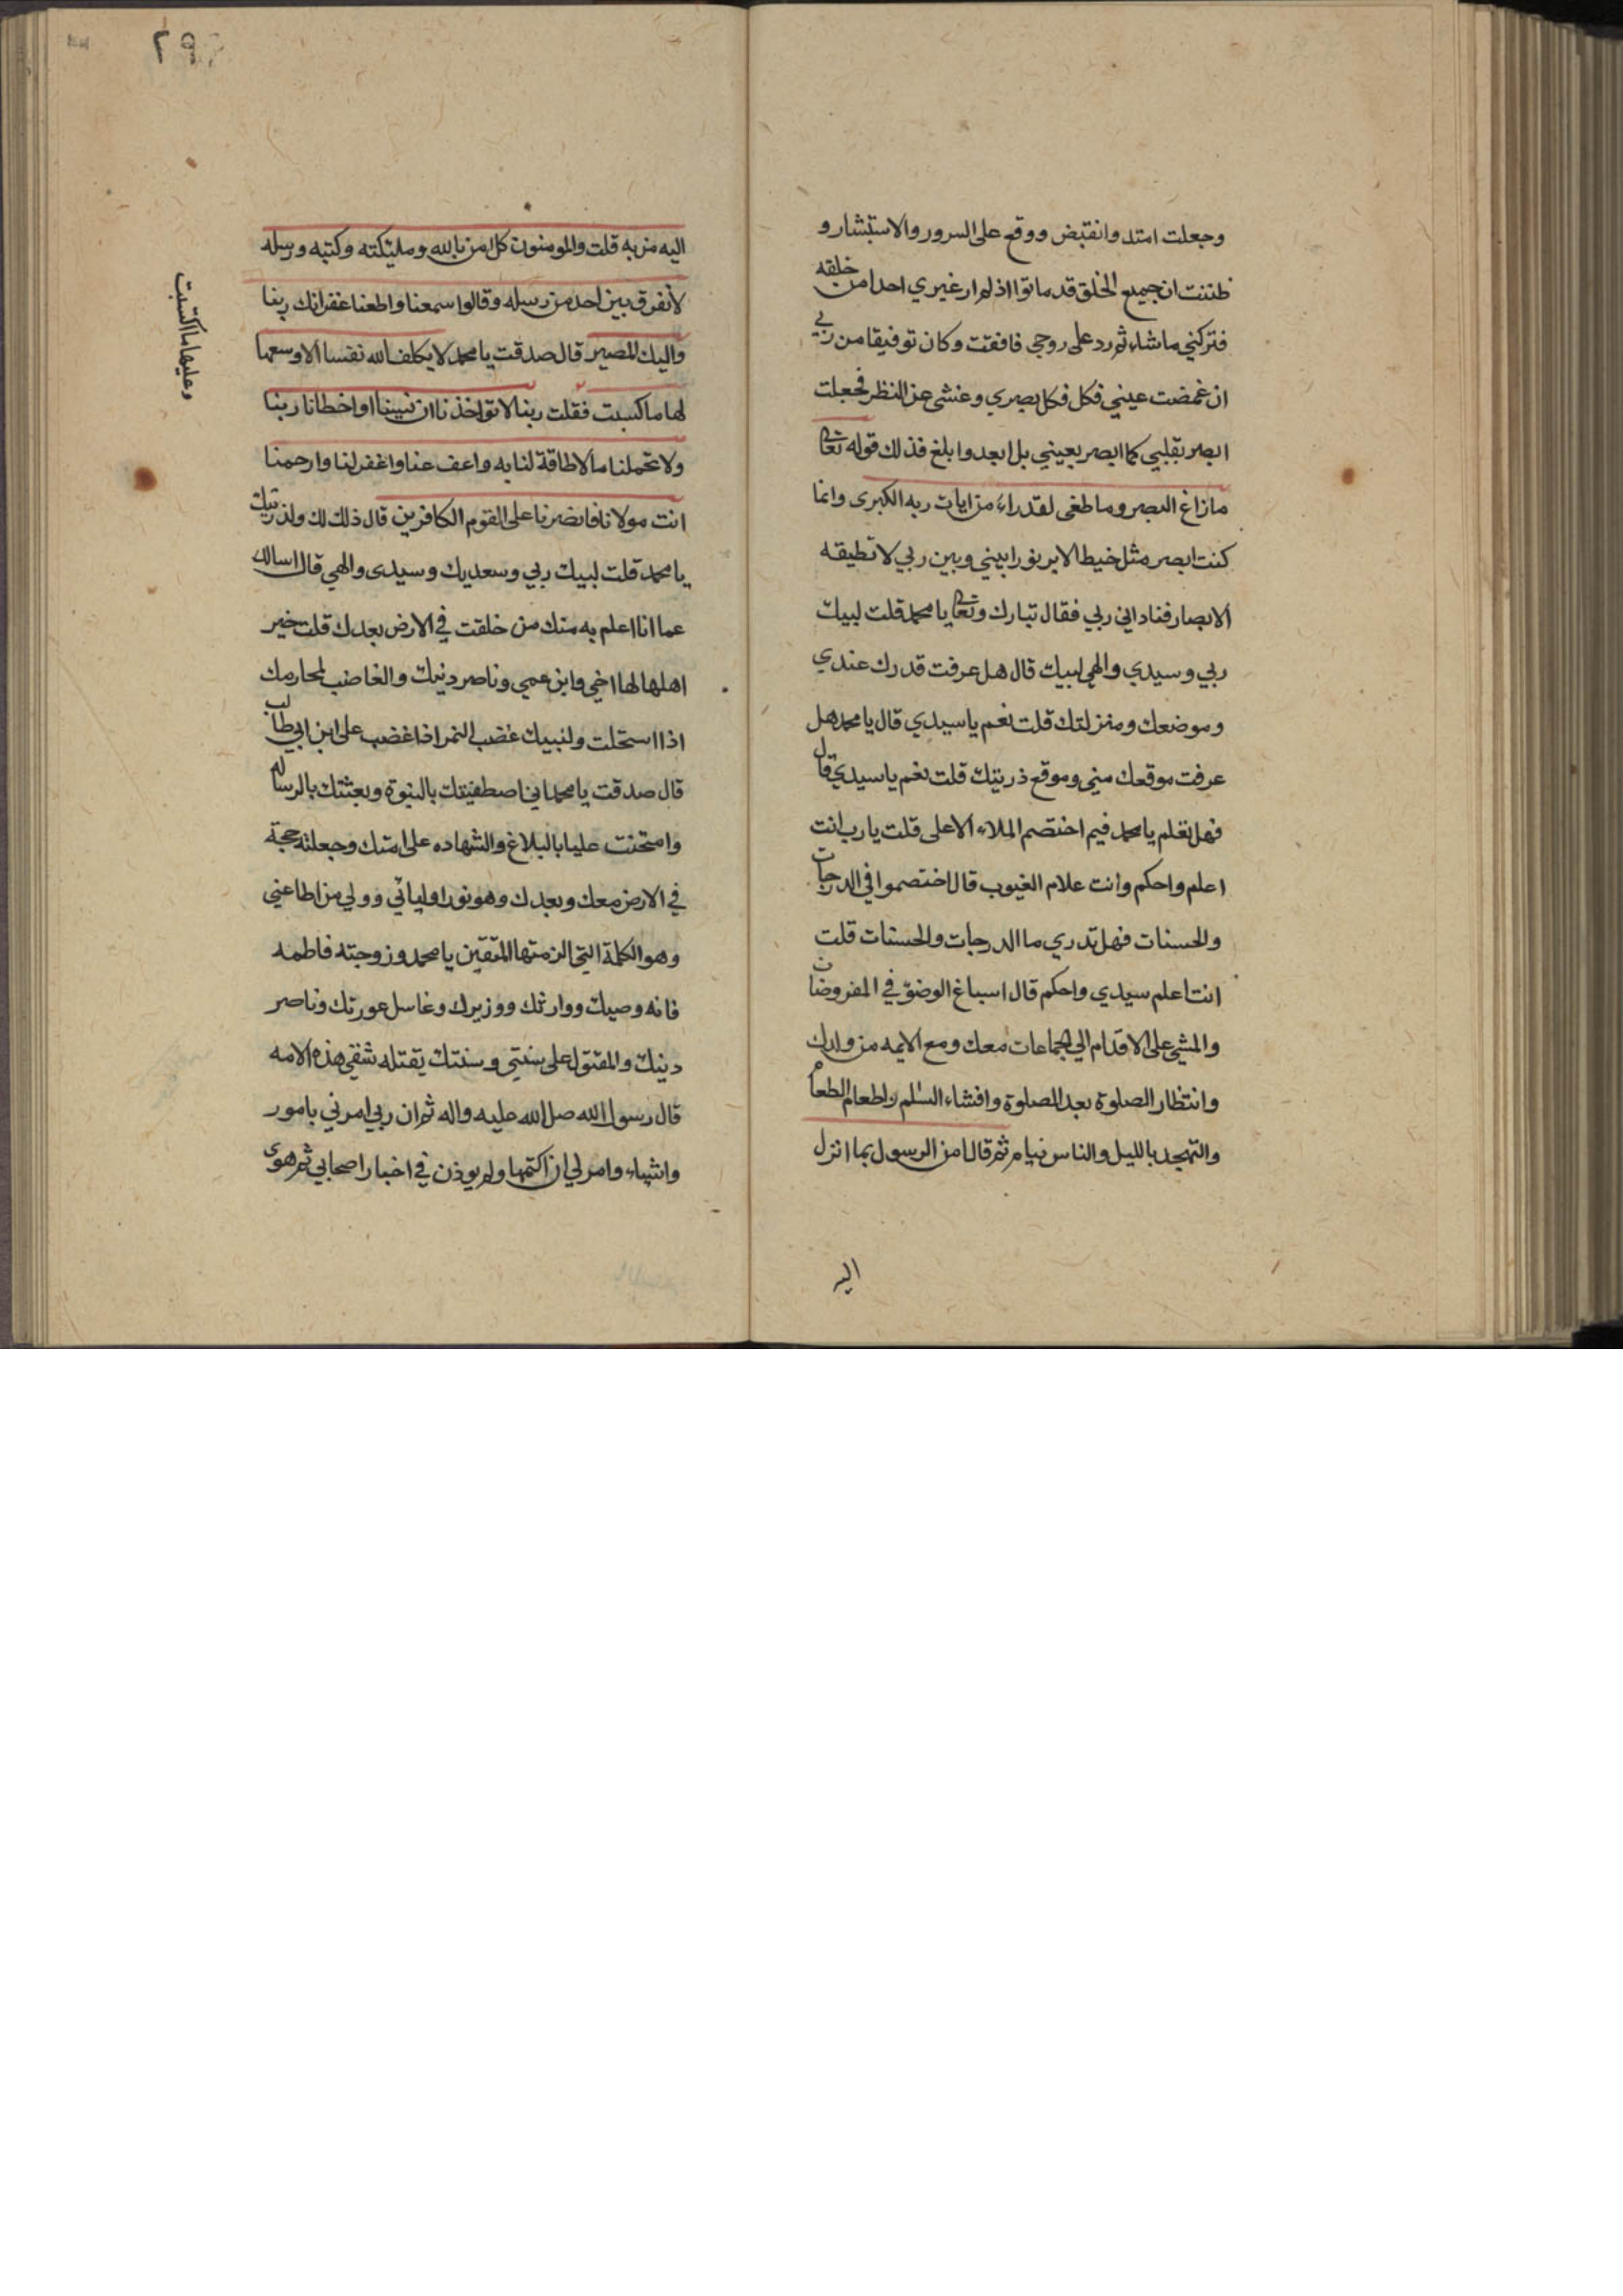 وجعلت امتد وانقبض ووقع على السرور والاستبشار و
ظننت ان جميع الخلق قد ماتوا اذ لم ار غيري احدا من خلقه
فتركني ماشاء ثم رد على روحي فافقت وكان توفيقا من ربي
ان غمضت عيني فكل فكل بصري وغشى عن النظر فجعلت
ابصر بقلبي كما ابصر بعيني بل ابعد وابلغ فذلك قوله تعالى
مازاغ البصر وما طغى لقد راى من ايات ربه الكبرى وانما
كنت ابصر مثل خيط الابر نورا بيني وبين ربي لا تطيقه
الابصار فناداني ربي فقال تبارك وتعالى يا محمد قلت لبيك
ربي وسيدي والهي لبيك قال هل عرفت قدرك عندي
وموضعك ومنزلتك قلت نعم يا سيدي قال يا محمد هل
عرفت موقعك مني وموقع ذريتك قلت نعم يا سيدي قال
فهل تعلم يا محمد فيم اختصم الملاء الاعلى قلت يا رب انت
اعلم واحكم وانت علام الغيوب قال اختصموا في الدرجات
والحسنات فهل تدري ما الدرجات والحسنات قلت
انت اعلم سيدي واحكم قال اسباغ الوضوء في المفروضات
والمشي على الاقدام الى الجماعات معك ومع الايمه من ولدك
وانتظار الصلوة بعد الصلوة وافشاء السلم واطعام الطعام
والتهجد بالليل والناس نيام ثم قال امن الرسول بما انزل
اليه
٢٩٢
اليه من ربه قلت والمومنون كل امن بالله ومليكته وكتبه ورسله
لا نفرق بين احد من رسله وقالوا سمعنا واطعنا غفرانك ربنا
واليك المصير قال صدقت يا محمد لا يكلف الله نفسا الا وسعها
لها ما كسبت فقلت ربنا لا تواخذنا ان نسينا او اخطانا ربنا
وعليها ما اكتسبت
ولا تحملنا مالا طاقة لنا به واعف عنا واغفر لنا وارحمنا
انت مولانا فانصرنا على القوم الكافرين قال ذلك لك ولذريتك
يا محمد قلت لبيك ربي وسعديك وسيدى والهي قال اسالك
عما انا اعلم به منك من خلقت في الارض بعدك قلت خير
اهلها لها اخي وابن عمي وناصر دينك والغاضب لمحارمك
اذا استحلت ولنبيك غضب النمر اذا غضب على ابن ابي طالب
قال صدقت يا محمد اني اصطفيتك بالنبوة وبعثتك بالرساله
وامتحنت عليا بالبلاغ والشهاده على امتك وجعلته حجة
في الارض معك وبعدك وهو نور اوليائي وولي من اطاعني
وهو الكلمة التي الزمتها المتقين يا محمد وزوجته فاطمه
فانه وصيك ووارثك ووزيرك وغاسل عورتك وناصر
دينك والمقتول على سنتي وسنتك يقتله شقي هذه الامه
قال رسول الله صل الله عليه واله ثم ان ربي امرني بامور
واشياء وامرلي ان اكتمها ولم يوذن في اخبار اصحابي ثم هوى